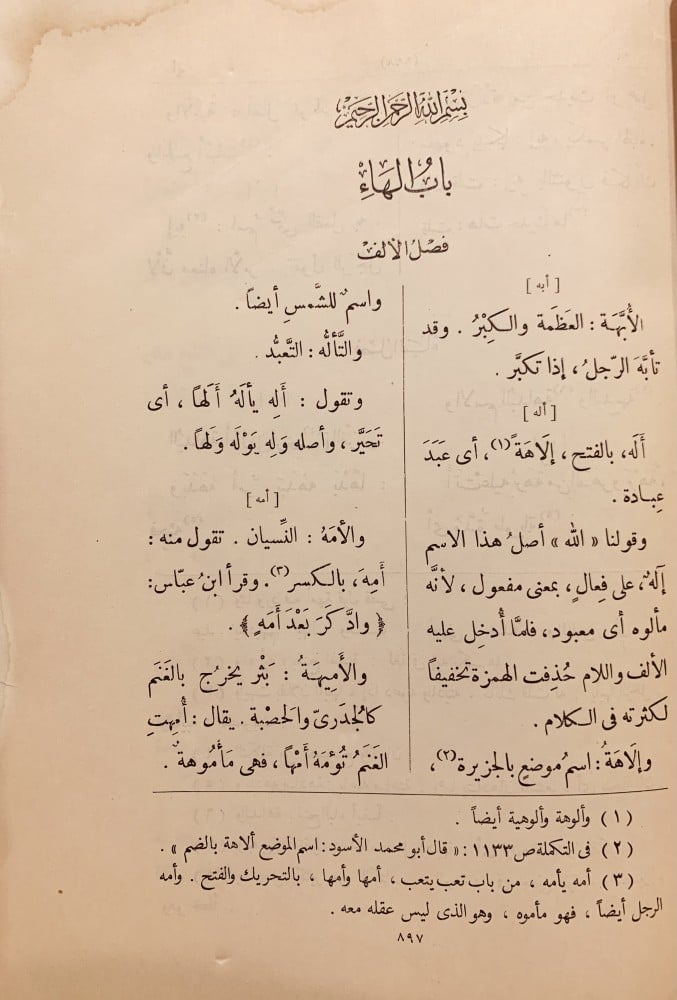 بِسْمِ اللهِ الرَّحْمَنِ الرَّحِيمِ
بابُ الهَاءِ
فصلُ الألف
[ أبه ]
الأُبَّهَة : العَظَمة والكِبْرُ . وقد
تأبَّهَ الرّجلُ ، إذا تكبَّر .
[ أله ]
أَلَه، بالفتح ، إلَاهَةً (١)، أى عَبَدَ
عِبادة .
وقولنا « الله » أصلُ هذا الاسم
إلَه، على فِعالٍ، بمعنى مفعول ، لأنَّه
مألوه أى معبود ، فلمَّا أُدخِل عليه
الألف واللام حُذِفت الهمزة تخفيفاً
لكثرته فى الكلام .
وإلَاهَةُ : اسمُ موضعٍ بالجزيرة (٢)،
واسمٌ للشَّمسِ أيضاً .
والتَّألُّه : التَّعبُّد .
وتقول : أَلِه يألَهُ أَلَهاً ، أى
تَحَيَّر ، وأصله وَلِه يَوْلَه وَلَهاً .
[ أمه ]
والأمَهُ : النِّسيان . تقول منه :
أَمِهَ، بالكسر (٣). وقرأ ابنُ عبّاس:
﴿ وادَّكَرَ بَعْدَ أَمَهٍ ﴾ .
والأَمِيهَةُ : بَثْر يخرُج بالغَنَم
كالجُدَرىّ والحَصْبة . يقال : أُمِهتِ
الغَنَمُ تُؤْمَهُ أَمْهاً ، فهى مَأمُوهةٌ .
(١) وألوهة وألوهية أيضاً .
(٢) فى التكملة ص ١١٣٣ : « قال أبو محمد الأسود : اسم الموضع ألاهة بالضم » .
(٣) أمه يأمه ، من باب تعب يتعب ، أمها وأمها ، بالتحريك والفتح . وأمه
الرجل أيضاً ، فهو مأموه ، وهو الذى ليس عقله معه .
٨٩٧